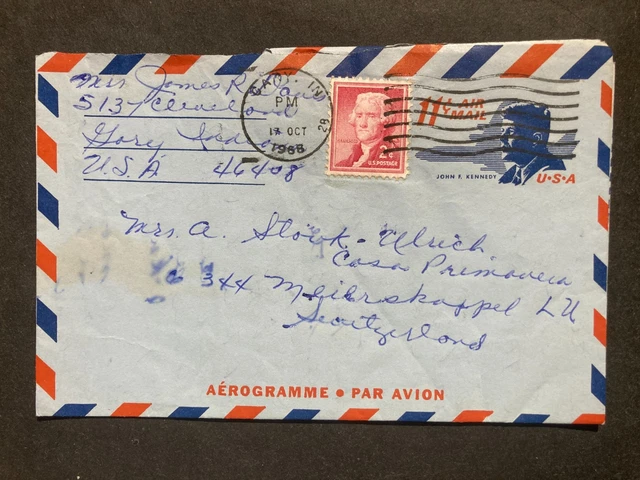 Mrs James R.
5137 Cleveland
Gary
U.S.A 46408
GARY. IND
PM
17 OCT
1968
2¢
U.S. POSTAGE
11¢ AIR MAIL
JOHN F. KENNEDY
U•S•A
Mrs. A. Stook-Ulrich
Casa Primavera
6344 Meierskappel LU
Switzerland
AÉROGRAMME • PAR AVION